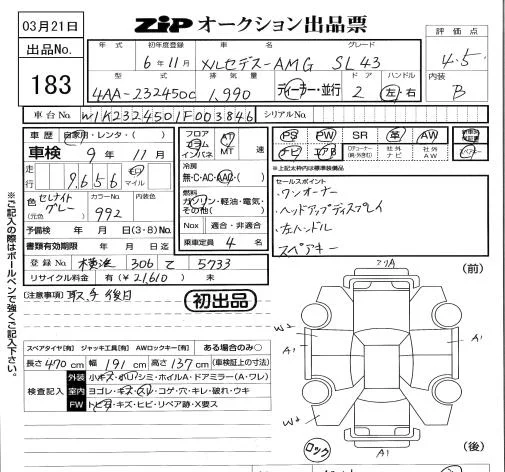 03月21日
ZIP オークション出品票
出品No.
183
年式 初年度登録 車名 グレード
6年11月 メルセデス-AMG SL43
型式 排気量 ドア ハンドル
4AA-232450C 1,990 ディーラー・並行 2 左・右
評価点
4.5
内装
B
車台No. W1K2324501F003846 シリアルNo.
車歴 自家用・レンタ・( )
車検 9年 11月
走行 9656 km マイル
色 セレナイトグレー (元色) カラーNo. 992
予備検 年 月 日(3・8)No.
書類有効期限 年 月 日迄
登録No. 横浜 306 て 5733
リサイクル料金 有(¥21,610) 無
フロア コラム インパネ AT MT 速
冷房 無・C・AC・AAC・( )
燃料 ガソリン・軽油・電気・その他( )
Nox 適合・非適合
乗車定員 4 名
PS PW SR 革 AW
ナビ エアB
※上記太枠内は標準装備品
セールスポイント
・ワンオーナー
・ヘッドアップディスプレイ
・左ハンドル
スペアキー
[注意事項] 取、手 後日
初出品
スペアタイヤ[有] ジャッキ工具[有] AWロックキー[有] ある場合のみ○
長さ 470 cm 幅 191 cm 高さ 137 cm (車検証上の寸法)
検査記入
外装 小キズ・小凹・シミ・ホイルA・ドアミラー(A・ワレ)
室内 ヨゴレ・キズ・スレ・コゲ・穴・キレ・破れ・ウキ
FW トビ石・キズ・ヒビ・リペア跡・X要ス
(前)
アリA
W2
A1
A1
W2
A1
ロック
(後)
※ご記入の際はボールペンで強くご記入下さい。